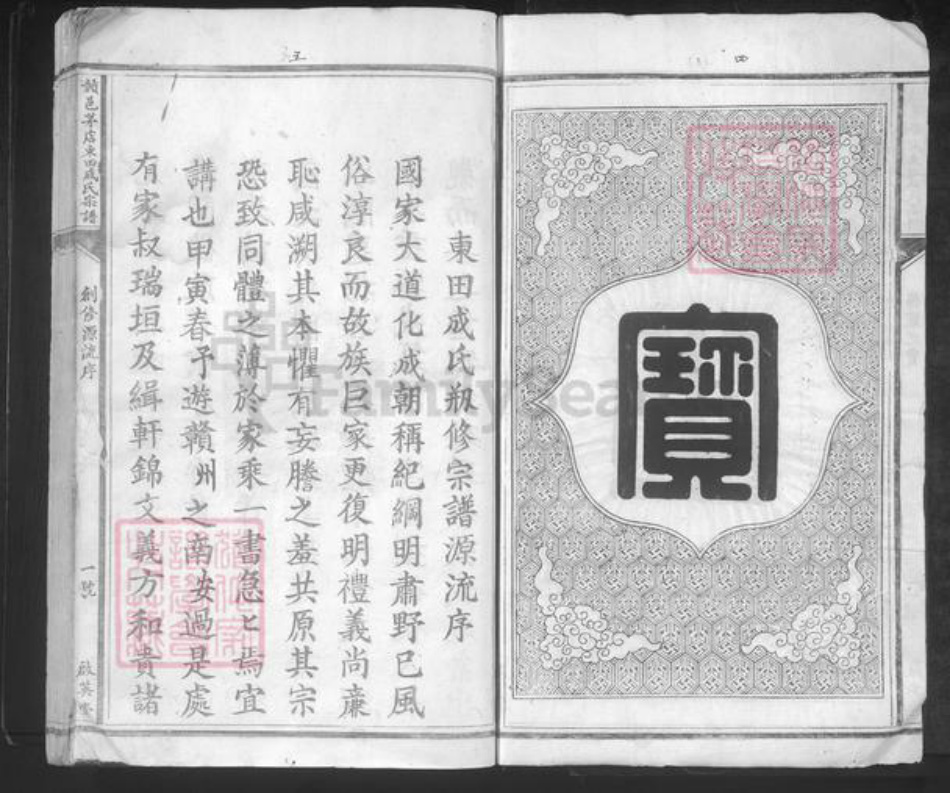 四
寶
五
東田成氏剏修宗譜源流序
國家大道化成朝稱紀綱明肅野已風
俗淳良而故族巨家更復明禮義尚廉
恥咸溯其本懼有妄謄之羞共原其宗
恐致同體之薄於家乘一書急匕焉宜
講也甲寅春予遊贛州之南安過是處
有家叔瑞垣及緝軒錦文義方和貴諸
東田成氏宗譜
創修源流序
一號
啟英堂
FamilySea